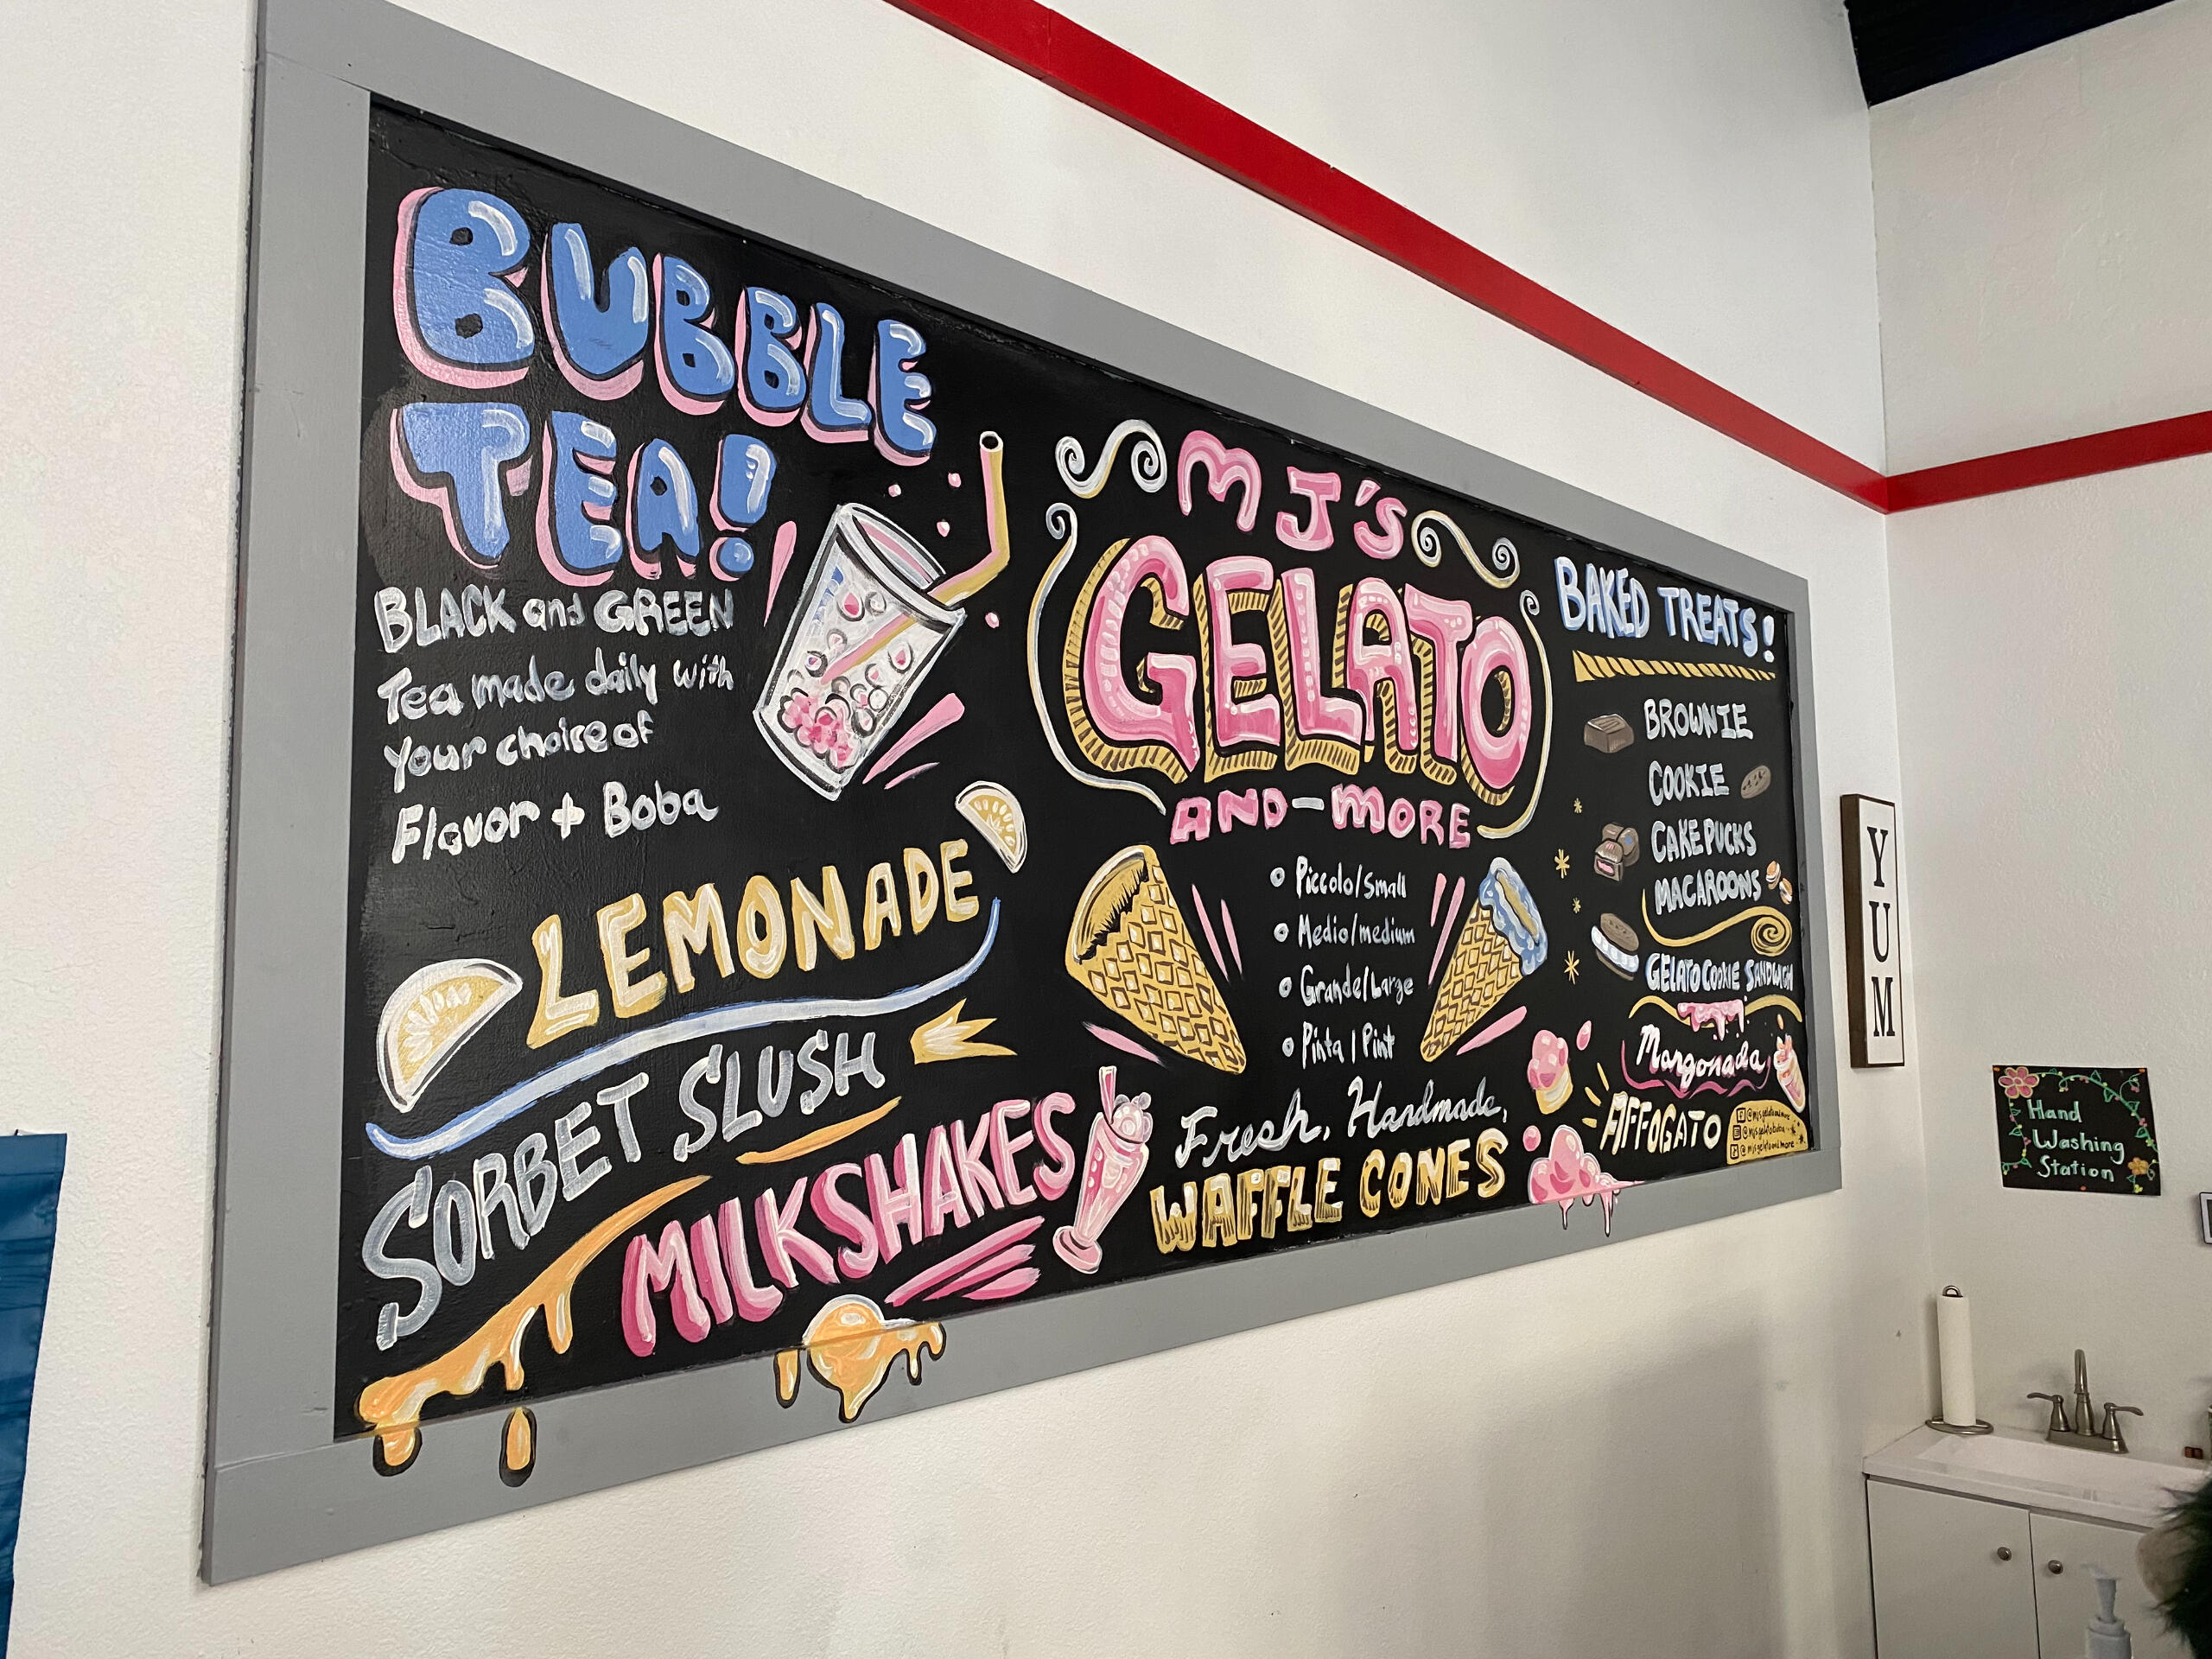 BUBBLE
TEA!
BLACK and GREEN
Tea made daily with
your choice of
Flavor + Boba
LEMONADE
SORBET SLUSH
MILKSHAKES
MJ'S
GELATO
AND-MORE
Piccolo/Small
Medio/medium
Grande/Large
Pinta/Pint
Fresh, Handmade,
WAFFLE CONES
BAKED TREATS!
BROWNIE
COOKIE
CAKE PUCKS
MACAROONS
GELATO COOKIE SANDWICH
Mangonada
AFFOGATO
@mjsgelatoandmore
@mjsgelatoboba
@mjsgelatoandmore
YUM
Hand
Washing
Station